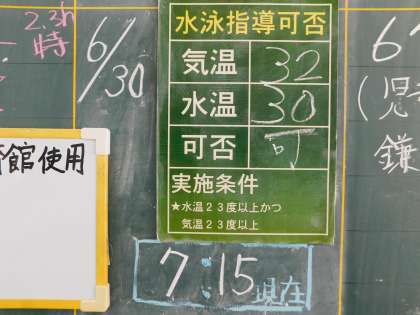 23h
時
6/30
水泳指導可否
気温 32
水温 30
可否 可
実施条件
★水温23度以上かつ
気温23度以上
7:15現在
館使用
6
(児
鎌